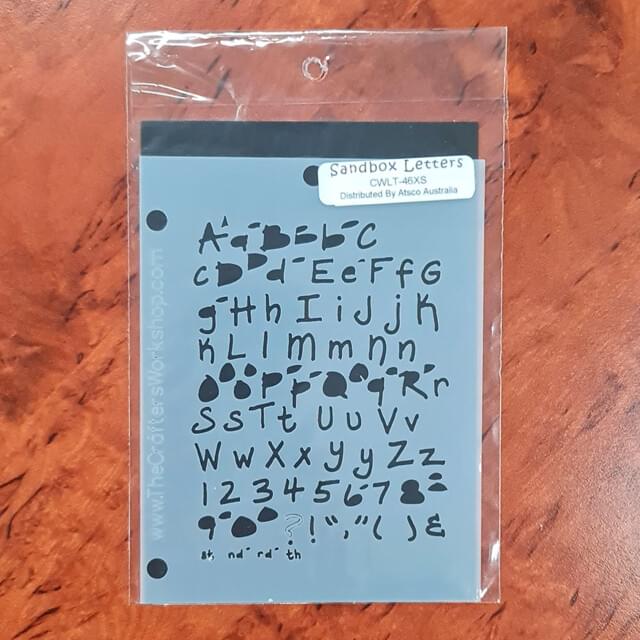 Sandbox Letters
CWLT-46XS
Distributed By Atsco Australia
A a B b C
c D d E e F f G
g H h I i J j K
k L l M m N n
O o P p Q q R r
S s T t U u V v
W w X x Y y Z z
1 2 3 4 5 6 7 8
9 0 ? ! " , " ( ) &
st nd rd th
www.TheCraftersWorkshop.com